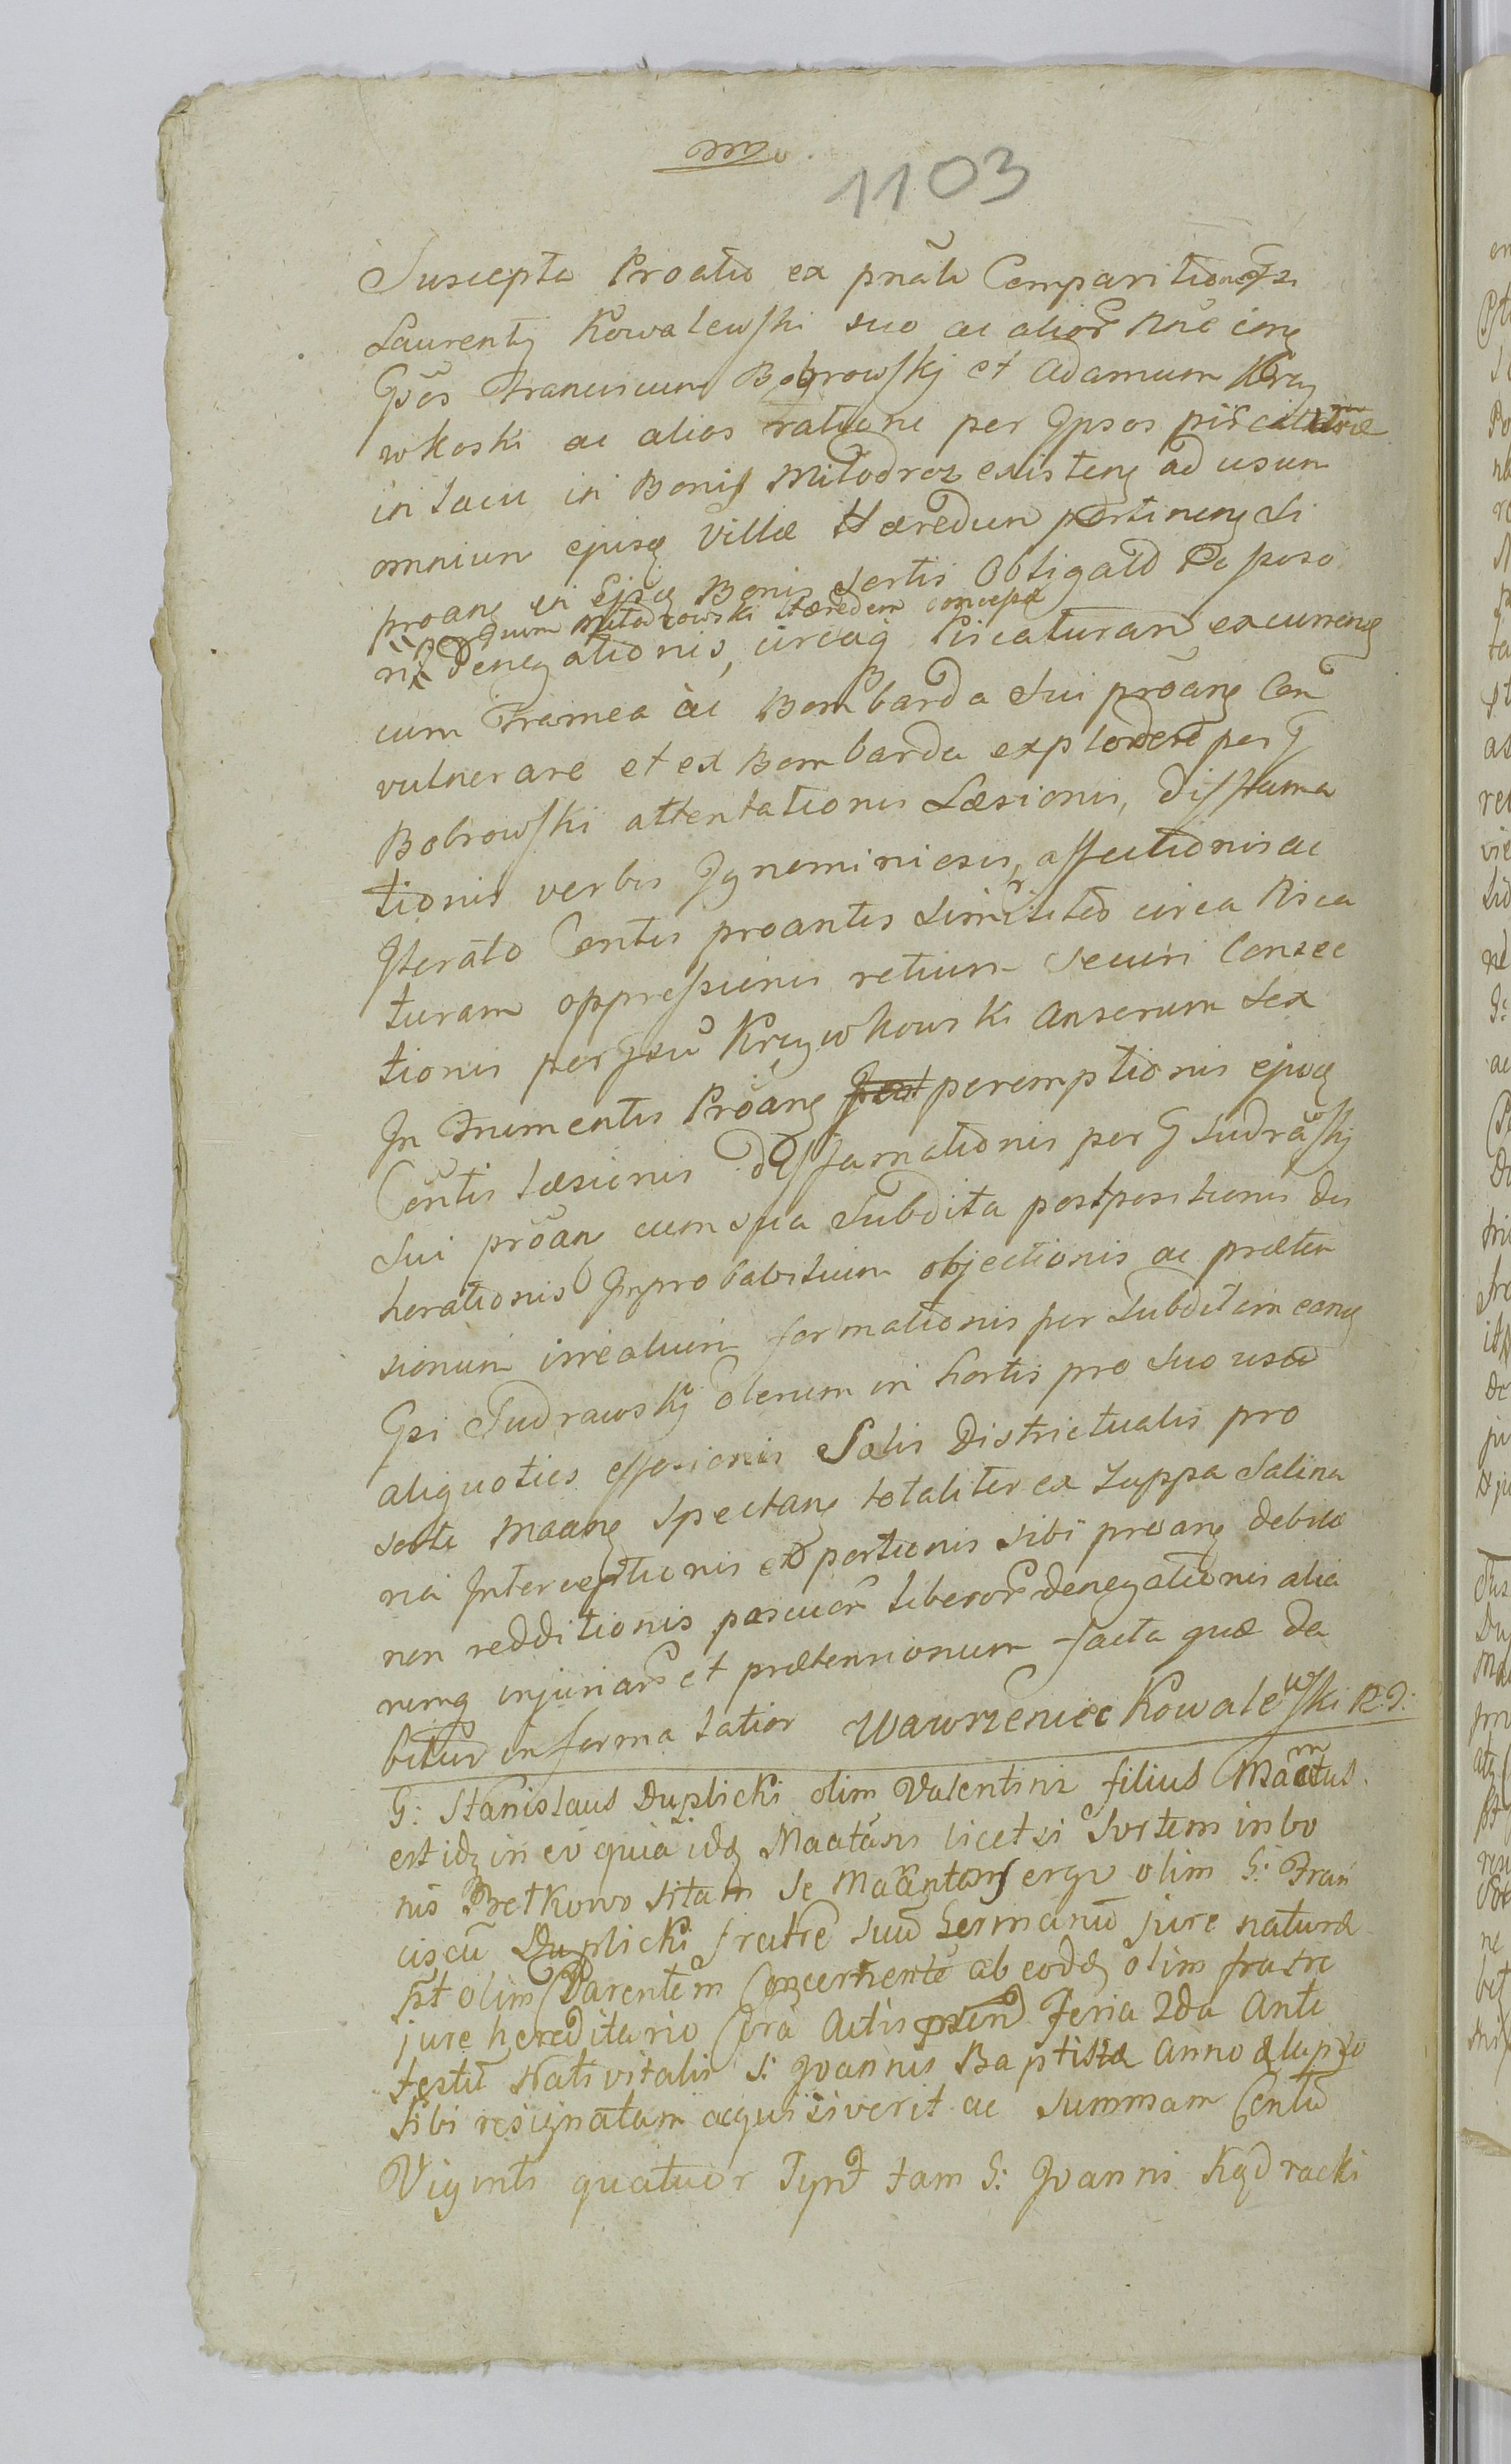 1103
Suscepta Proatio ex pnāli Comparitione Gsi
Laurentÿ Kowalewski suo ac alior̃ nõe conq
Gsos Franciscum Bobrowskj et Adamum Krzy
wkoski ac alios ratione per Ipsos piscaturæ
in lacu in Bonis Miłodroz existenq ad usum
omnium ejusq Villæ Hæredum pertinenq Si
proanq in Ejusq Bonis Sortis Obligatō
per Gsum Miłodrowski Hæredem concepæ
denegationis, circaq Piscaturam excurrenq
cum Framea ac Bombarda Sui proanq Con
vulnerare et ex Bombarda explodere per G
Bobrowski attentationis Læsionis, diffama
tionis verbis Ignominiosis, affectionis ac
Iterato Contis proantis Simititio circa Pisca
turam oppressionis retium Securi Consec
tionis per Gsū Krzywkowski Anserum Sex
In Frumentis Proanq peremptionis ejusq
Contis Læsionis Diffamationis per G Sudrawskj
Sui proan cum sua Subdita postpositionis de
horationis Improbabilium objectionis ac præten
sionum irrealium formationis per Subditam eanq
Gsi Sudrawskj olerum in hortis pro suo usu
aliquoties effosionis Salis Districtualis pro
sorte Maanq Spectanq totaliter ex Zuppa Salina
ria Interceptionis et portionis sibi proanq debitæ
non redditionis pascuor̃ liberor̃ denegationis alia
rumq injuriar̃ et prætensionum facta quæ da
bitur in forma latior Wawrzeniec Kowalewski R.D:
G: Stanislaus Duplicki olim Valentini filius Maatus
est idq in eo quia idq Maatāns licet si Sortem in bo
nis Betkowo sitam se Maantam erga olim G: Fran
ciscū Duplicki fratrē suū Germanū jure naturæ
pt olim Parentem Concernentē ab eodq olim fratre
jure hereditario Corā Actis psen Feria 2da Ante
festū Nativitatis S: Joannis Baptistæ Anno elapso
sibi resignatam acquisiverit ac summam Centū
Viginti quatuor Tynf tam G: Joannis Kędracki